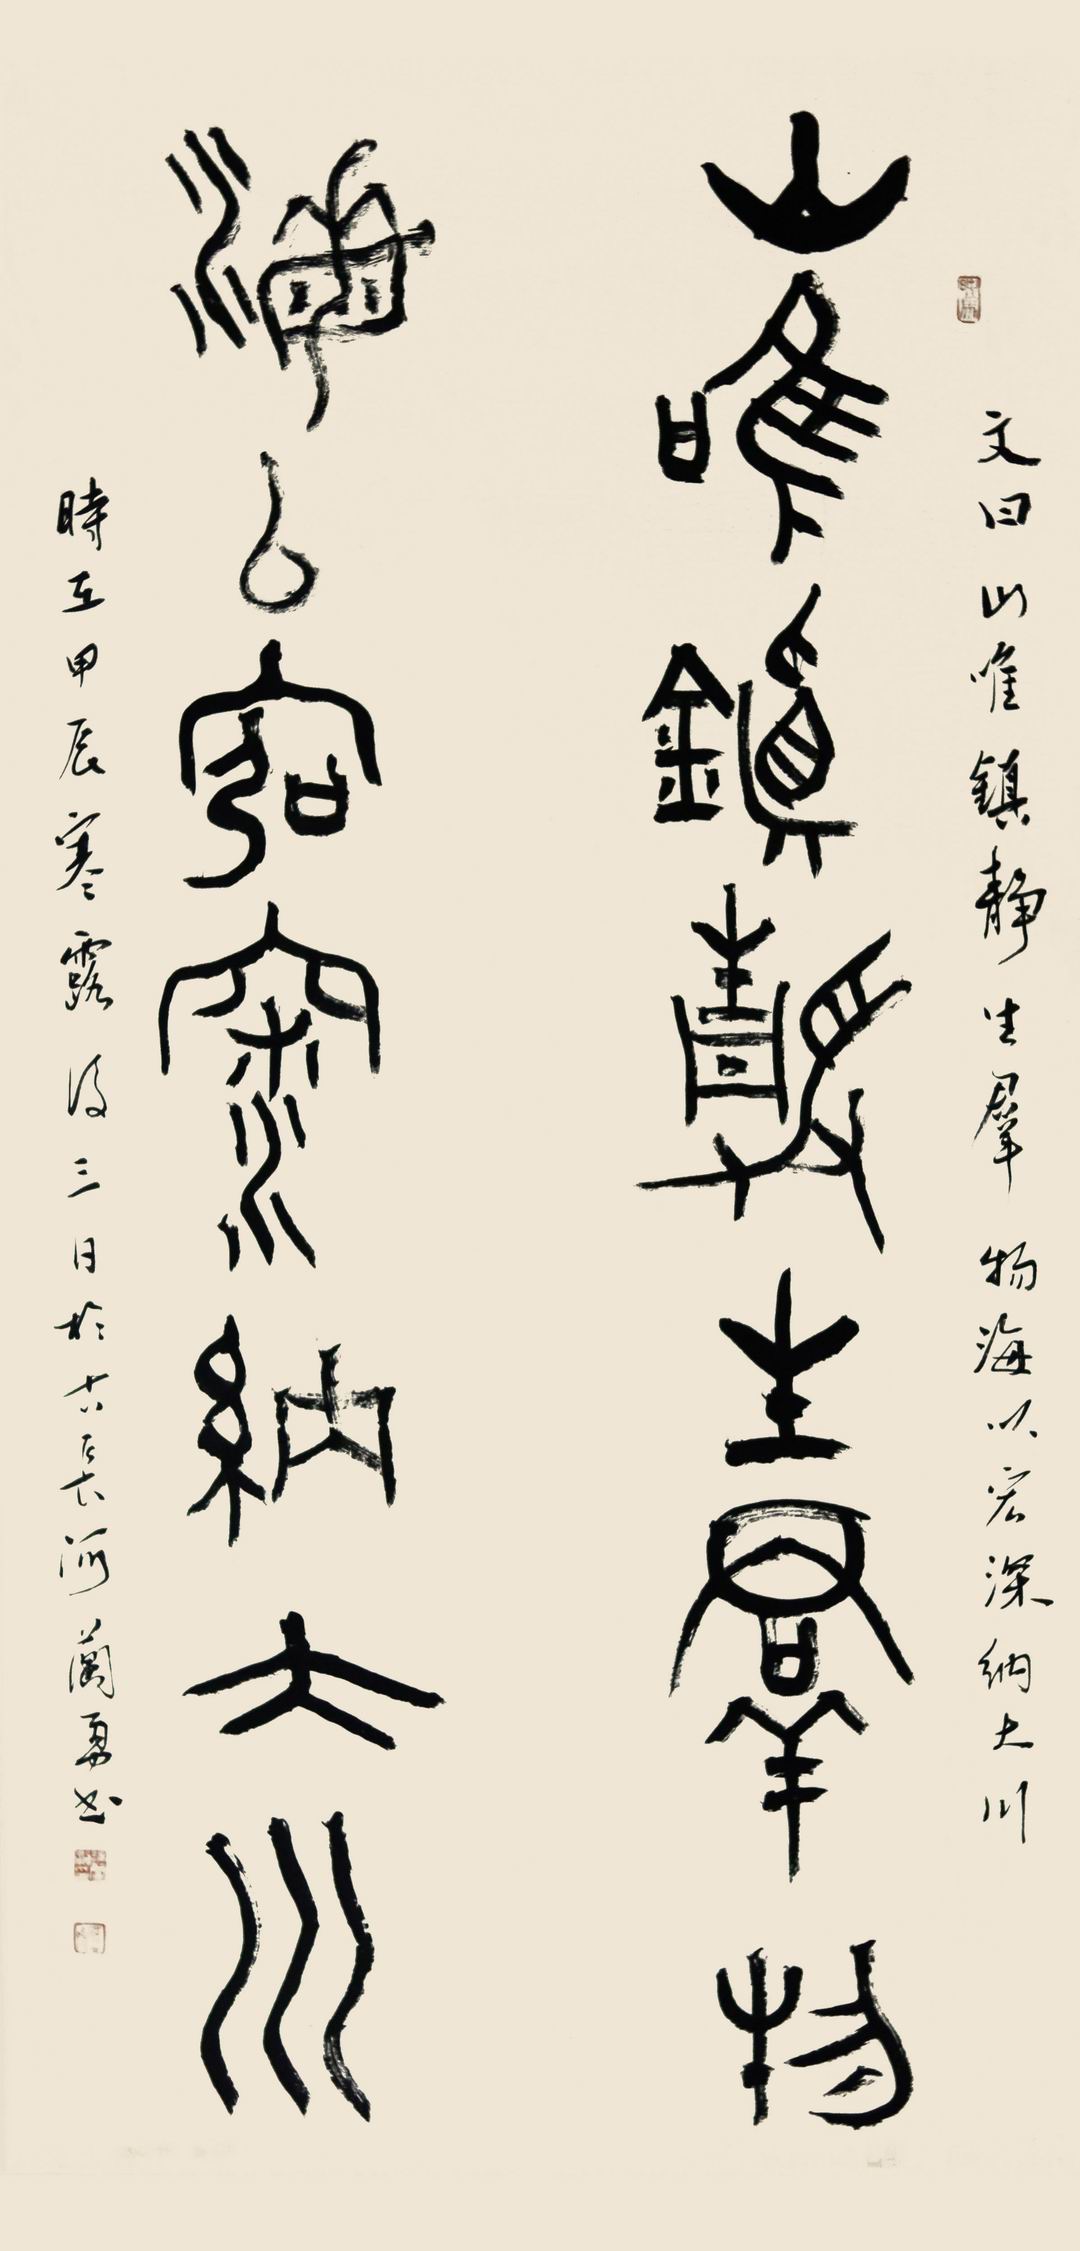 文曰山唯鎮静生羣物海以宏深納大川
山唯鎮静生羣物
海以宏深納大川
時在甲辰寒露後三日於古長河蘭勇书